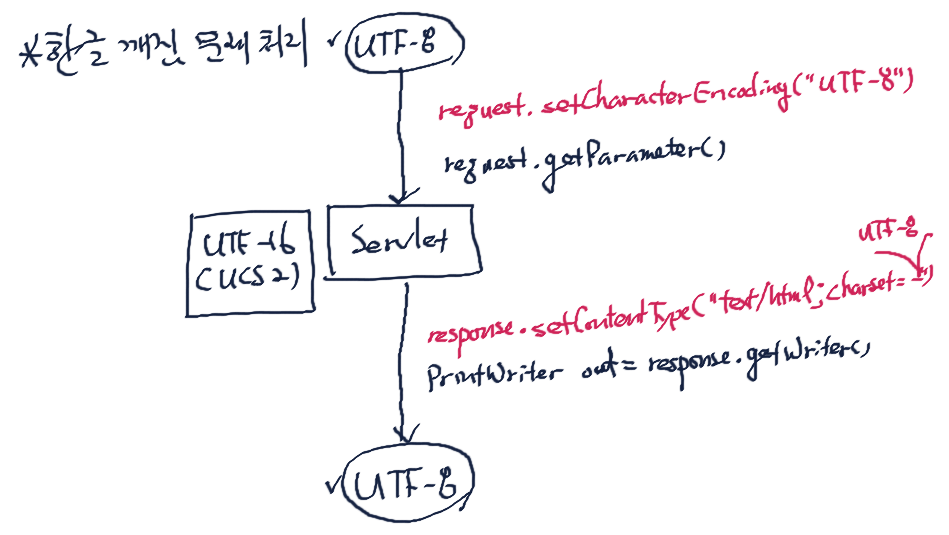 *한글 깨진 문제 처리 ✓ UTF-8
request.setCharacterEncoding("UTF-8")
request.getParameter()
UTF-16
(UCS2)
Servlet
UTF-8
response.setContentType("text/html; charset= ")
PrintWriter out = response.getWriter()
✓ UTF-8